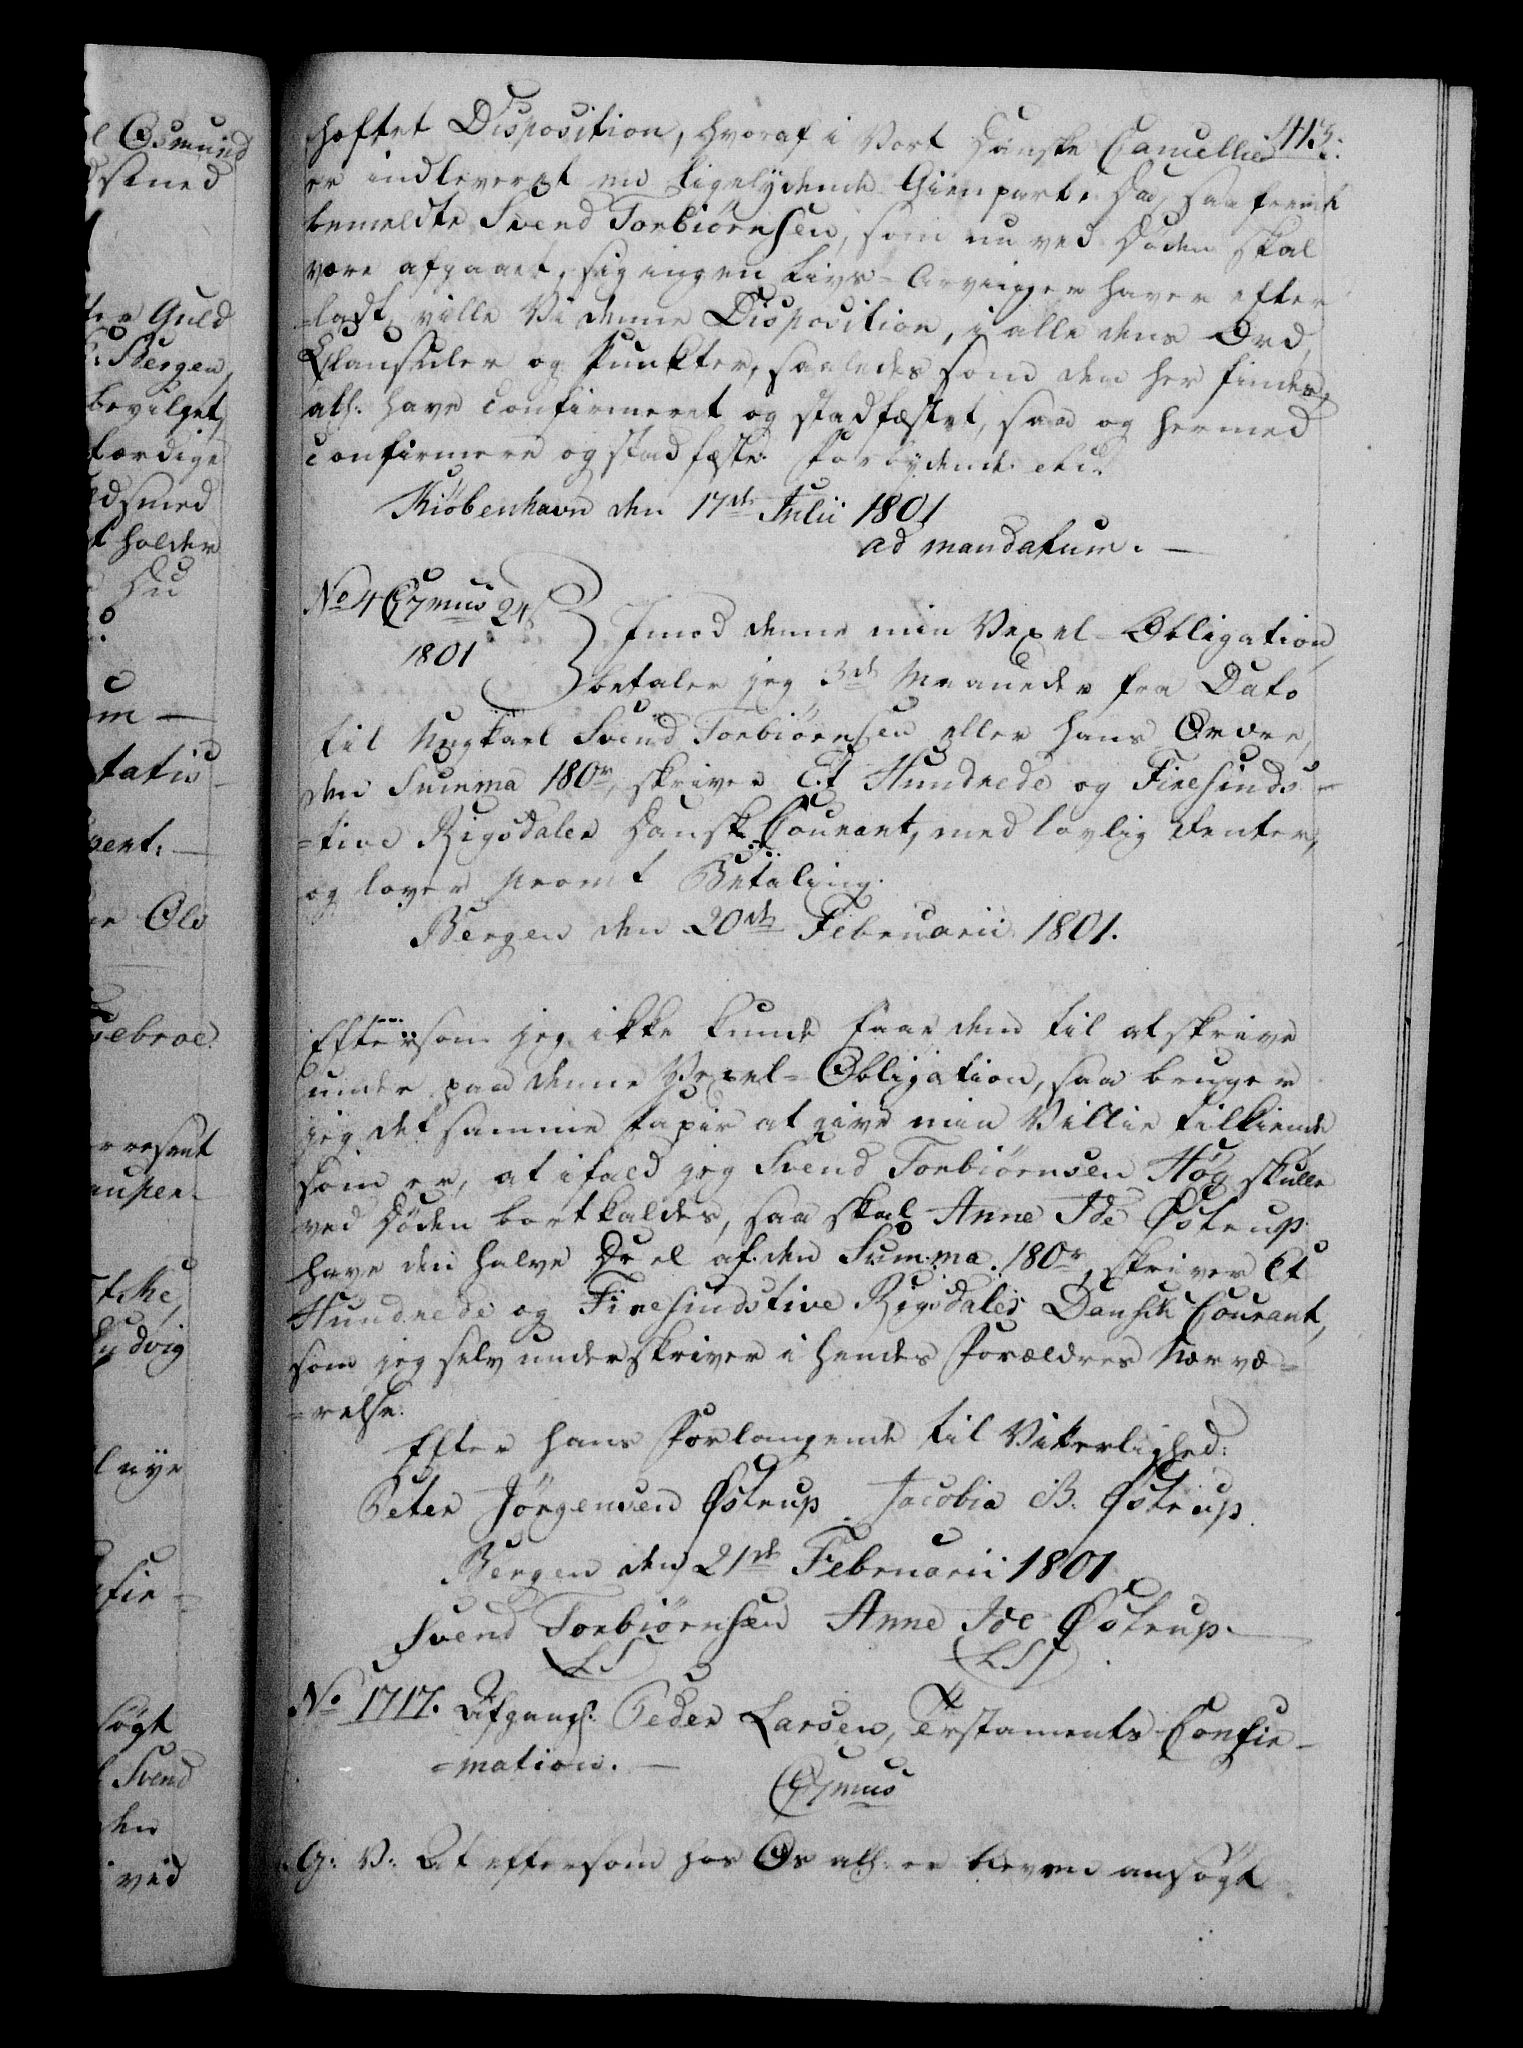 413.
heftet Disposition, hvoraf i Vort Danske Cancellie
er indleveret en ligelydende Gienpart. Da, saafremt
bemeldte Svend Torbiørnsen, som nu ved Døden skal
være afgaaet, sig ingen Livs-Arvinger haver efter
=ladt, ville Vi denne Disposition, i alle dens Ord,
Clausuler og Punkter, saaledes som den her findes,
alh: have confirmeret og stadfæstet, saa og hermed
confirmere og stadfæste. Forbydende etc.
Kiöbenhavn den 17de Julii 1801
ad mandatum. —
No 4 24
1801
Imod denne min Vexel-Obligation,
betaler jeg 3de Maaneder fra Dato
til Ungkarl Svend Torbiörnsen eller hans Ordre,
den Summa 180r, skriver Et Hundrede og Firesinds-
=tive Rigsdaler Dansk Courant, med lovlig Renter,
og lover promt Betaling.
Bergen den 20de Februarii 1801.
Eftersom jeg ikke kunde faae dem til at skrive
under paa denne Vexel-Obligation, saa bruger
jeg det samme Papir at give min Villie tilkiende
som er, at ifald jeg Svend Torbiörnsen Høg skulle
ved Døden bortkaldes, saa skal Anne Ide Östrup
have den halve Deel af den Summa 180r, skriver Et
Hundrede og Firesindstive Rigsdaler Dansk Courant,
som jeg selv underskriver i hendes Forældres Nærvæ=
=relse.
Efter hans Forlangende til Vitterlighed:
Peter Jörgensen Östrup. Jacobia B. Östrup.
Bergen den 21de Februarii 1801
Svend Torbiörnsen Anne Ide Östrup.
LS LS
No 1717. Afgangl: Peder Larsen, Testaments Confir-
=mation. —
G: V: At eftersom hos Os alh: er bleven ansøgt